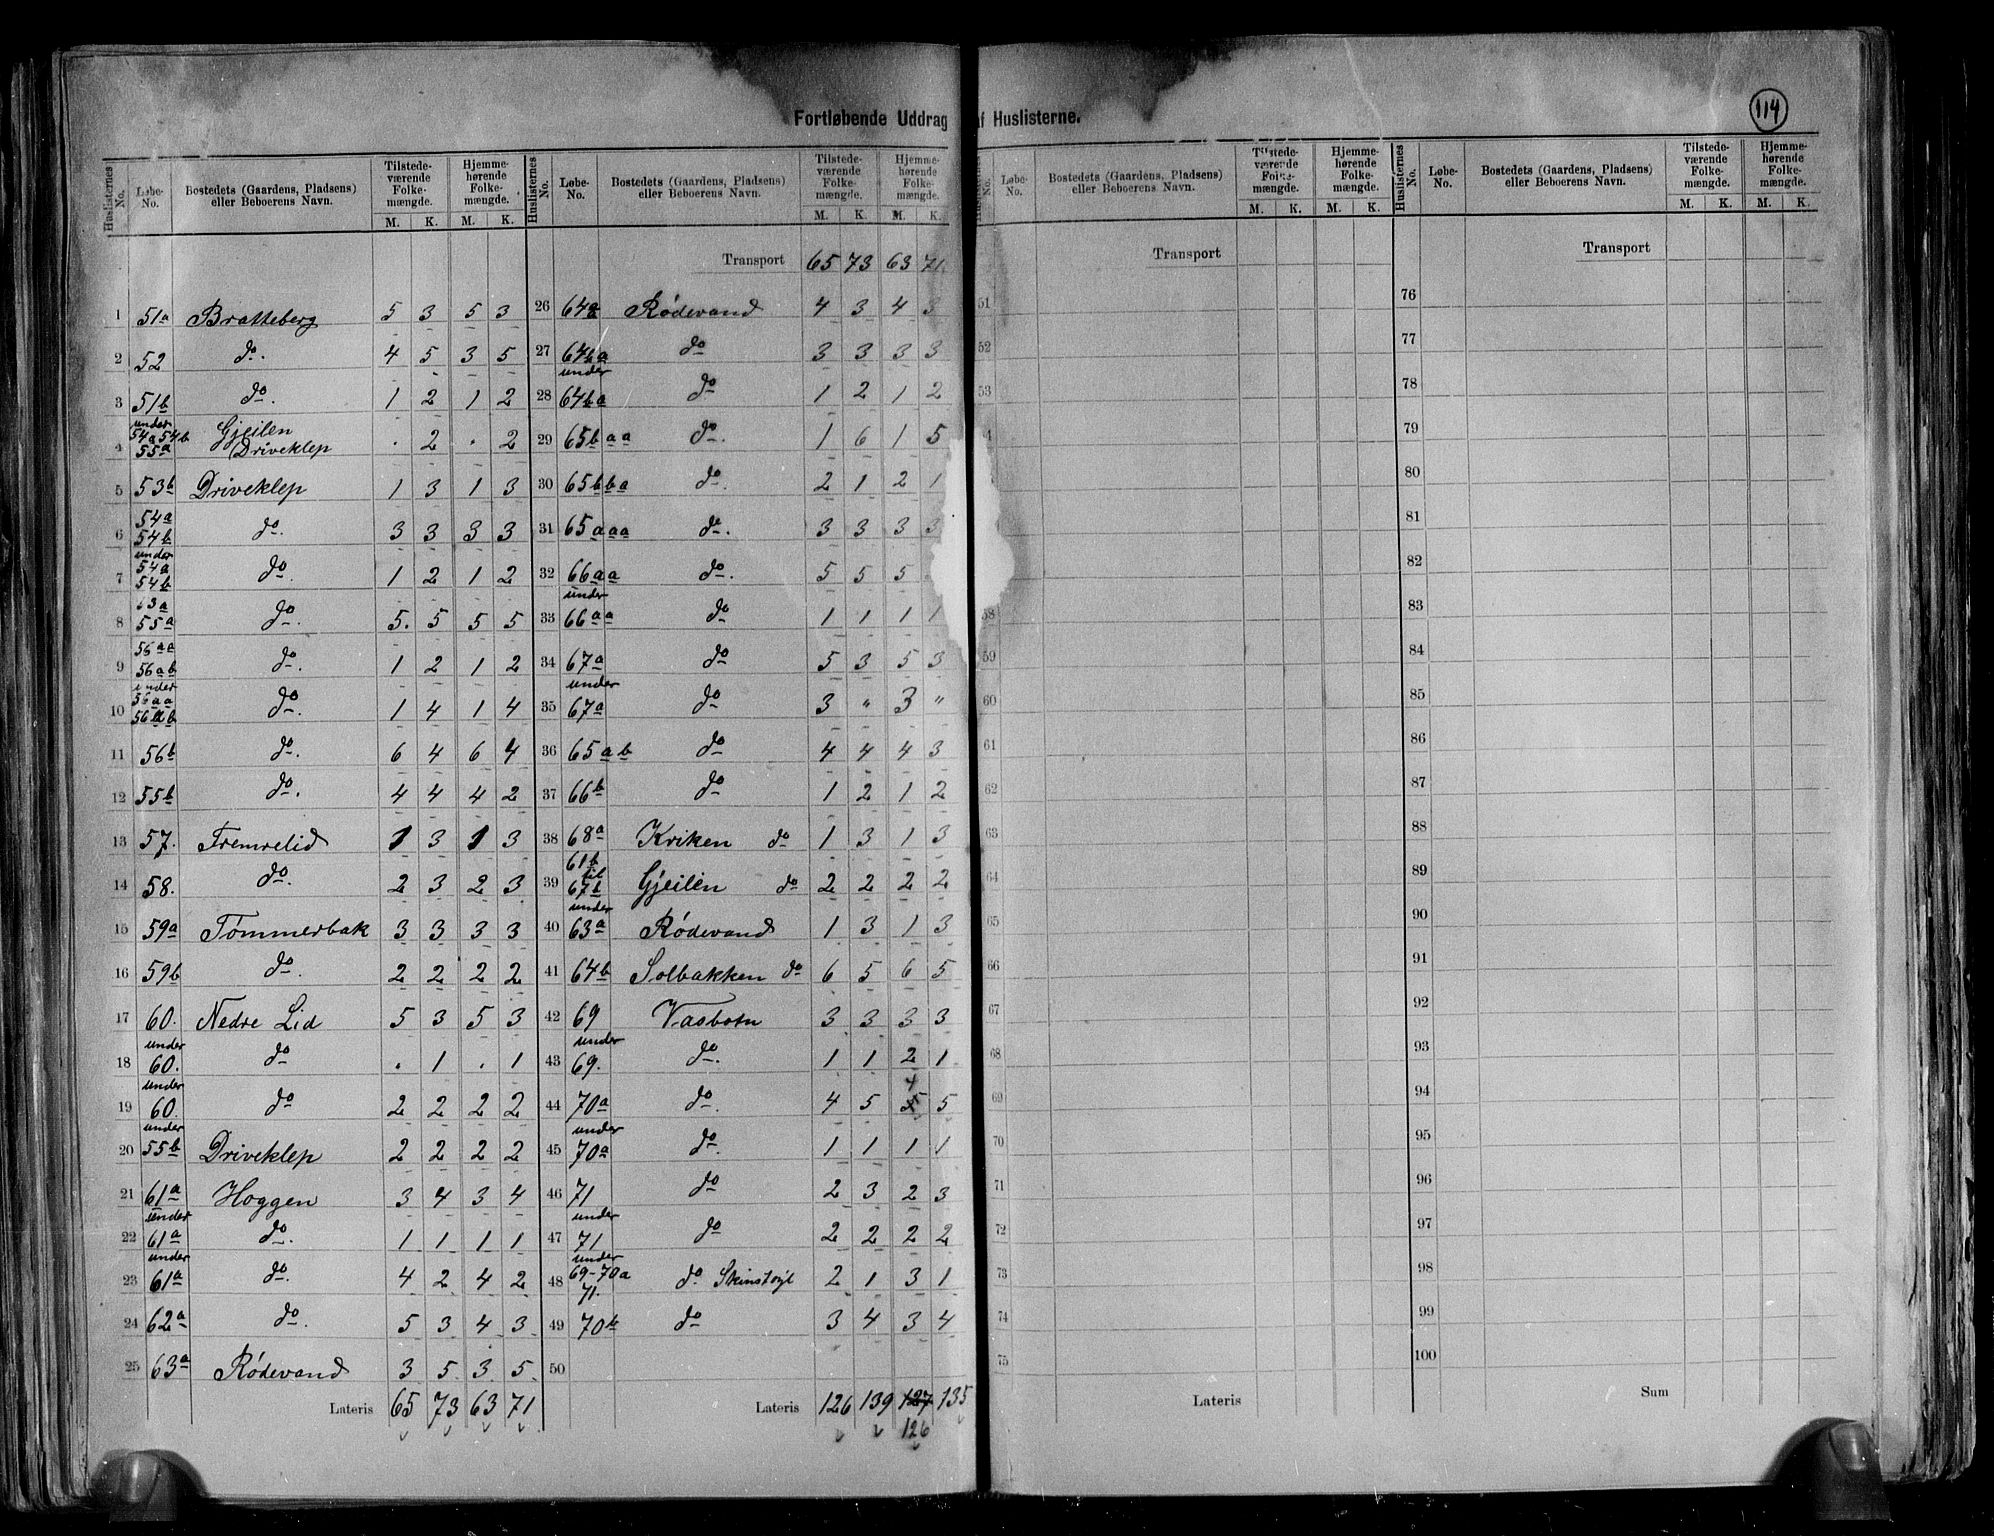 Fortløbende Uddrag af Huslisterne.
114
Huslisternes No. Løbe-No. Bostedets (Gaardens, Pladsens) eller Beboerens Navn. Tilstedeværende Folkemængde. M. K. Hjemmehørende Folkemængde. M. K.
1 51a Bratteberg 5 3 5 3
2 52 do. 4 5 3 5
3 51b do. 1 2 1 2
4 under 54a 54b 55a Gjeilen Driveklep . 2 . 2
5 53b Driveklep 1 3 1 3
6 54a 54b do. 3 3 3 3
7 under 54a 54b do. 1 2 1 2
8 53a 55a do. 5. 5 5 5
9 56aa 56ab do. 1 2 1 2
10 under 56aa 56ab do. 1 4 1 4
11 56b do. 6 4 6 4
12 55b do. 4 4 4 2
13 57. Fremrelid 1 3 1 3
14 58. do. 2 3 2 3
15 59a Tømmerbak 3 3 3 3
16 59b do. 2 2 2 2
17 60. Nedre Lid 5 3 5 3
18 under 60. do . 1 . 1
19 under 60. do 2 2 2 2
20 under 55b Driveklep 2 2 2 2
21 61a Hoggen 3 4 3 4
22 under 61a do. 1 1 1 1
23 under 61a do. 4 2 4 2
24 62a do. 5 3 4 3
25 63a Rødevand 3 5 3 5
Lateris 65 73 63 71
Huslisternes No. Løbe-No. Bostedets (Gaardens, Pladsens) eller Beboerens Navn. Tilstedeværende Folkemængde. M. K. Hjemmehørende Folkemængde. M. K.
Transport 65 73 63 71
26 64a Rødevand 4 3 4 3
27 64ba do 3 3 3 3
28 under 64ba do 1 2 1 2
29 65baa do. 1 6 1 5
30 65bba do. 2 1 2 1
31 65aaa do. 3 3 3 3
32 66aa do. 5 5 5
33 under 66aa do 1 1 1 1
34 67a do 5 3 5 3
35 under 67a do 3 " 3 "
36 65ab do 4 4 4 3
37 66b do 1 2 1 2
38 68a Kriken do 1 3 1 3
39 61b til 67b Gjeilen do 2 2 2 2
40 under 63a Rødevand 1 3 1 3
41 64b Solbakken do 6 5 6 5
42 69 Vasbotn 3 3 3 3
43 under 69. do. 1 1 2 1
44 70a do. 4 5 4 5 5
45 under 70a do. 1 1 1 1
46 71 do 2 3 2 3
47 under 71 do 2 2 2 2
48 under 69-70a 71. do 2 1 3 1
49 70b do 3 4 3 4
50
Lateris 126 139 127 135
126
Huslisternes No. Løbe-No. Bostedets (Gaardens, Pladsens) eller Beboerens Navn. Tilstedeværende Folkemængde. M. K. Hjemmehørende Folkemængde. M. K.
Transport
51
52
53
4
58
59
60
61
62
63
64
65
66
67
68
69
70
71
72
73
74
75
Lateris
Huslisternes No. Løbe-No. Bostedets (Gaardens, Pladsens) eller Beboerens Navn. Tilstedeværende Folkemængde. M. K. Hjemmehørende Folkemængde. M. K.
Transport
76
77
78
79
80
81
82
83
84
85
86
87
88
89
90
91
92
93
94
95
96
97
98
99
100
Sum